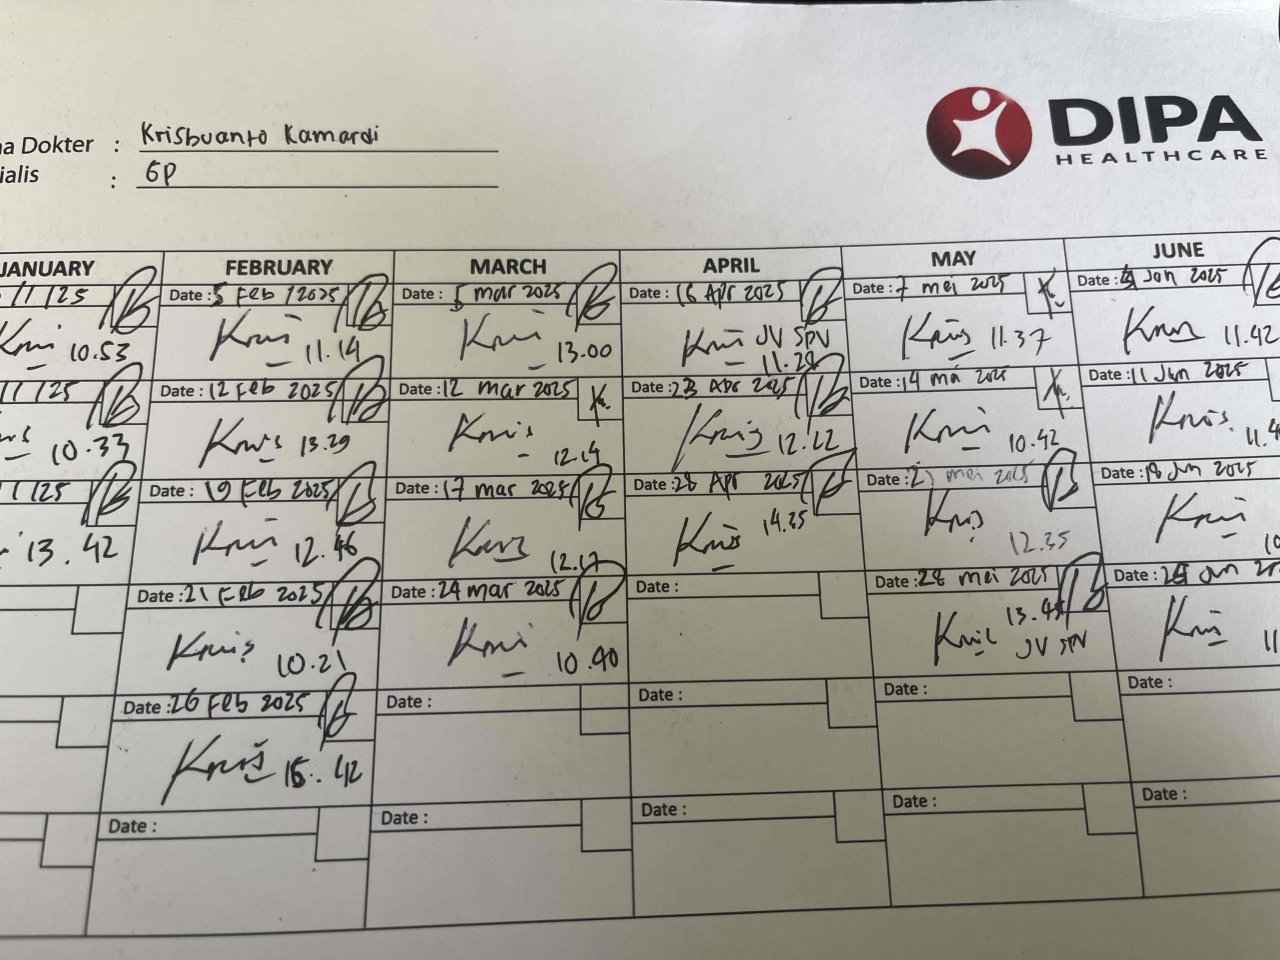 DIPA
HEALTHCARE
Dokter : Krisbuanto Kamardi
ialis : GP
JANUARY FEBRUARY MARCH APRIL MAY JUNE
/1/25 Date : 5 Feb /2025 Date : 5 mar 2025 Date : 16 Apr 2025 Date : 7 mei 2025 Date : Jun 2025
10.53 11.14 13.00 JV SPV 11.37 11.42
11.28
/1/25 Date : 12 Feb 2025 Date : 12 mar 2025 Date : 23 Apr 2025 Date : 14 mei 2025 Date : 11 Jun 2025
10.33 Kris 13.29 Kris 12.14 Kris 12.22 10.42 Kris 11.4
/1/25 Date : 19 Feb 2025 Date : 17 mar 2025 Date : 28 Apr 2025 Date : 21 mei 2025 Date : 18 Jun 2025
13.42 12.46 12.17 Kris 14.25 Kris 12.35 10
Date : 21 Feb 2025 Date : 24 mar 2025 Date : Date : 28 mei 2025 Date : 25 Jun 20
Kris 10.21 10.40 13.45 11
JV SPV
Date : 26 Feb 2025 Date : Date : Date : Date :
Kris 15.42
Date : Date : Date : Date : Date :